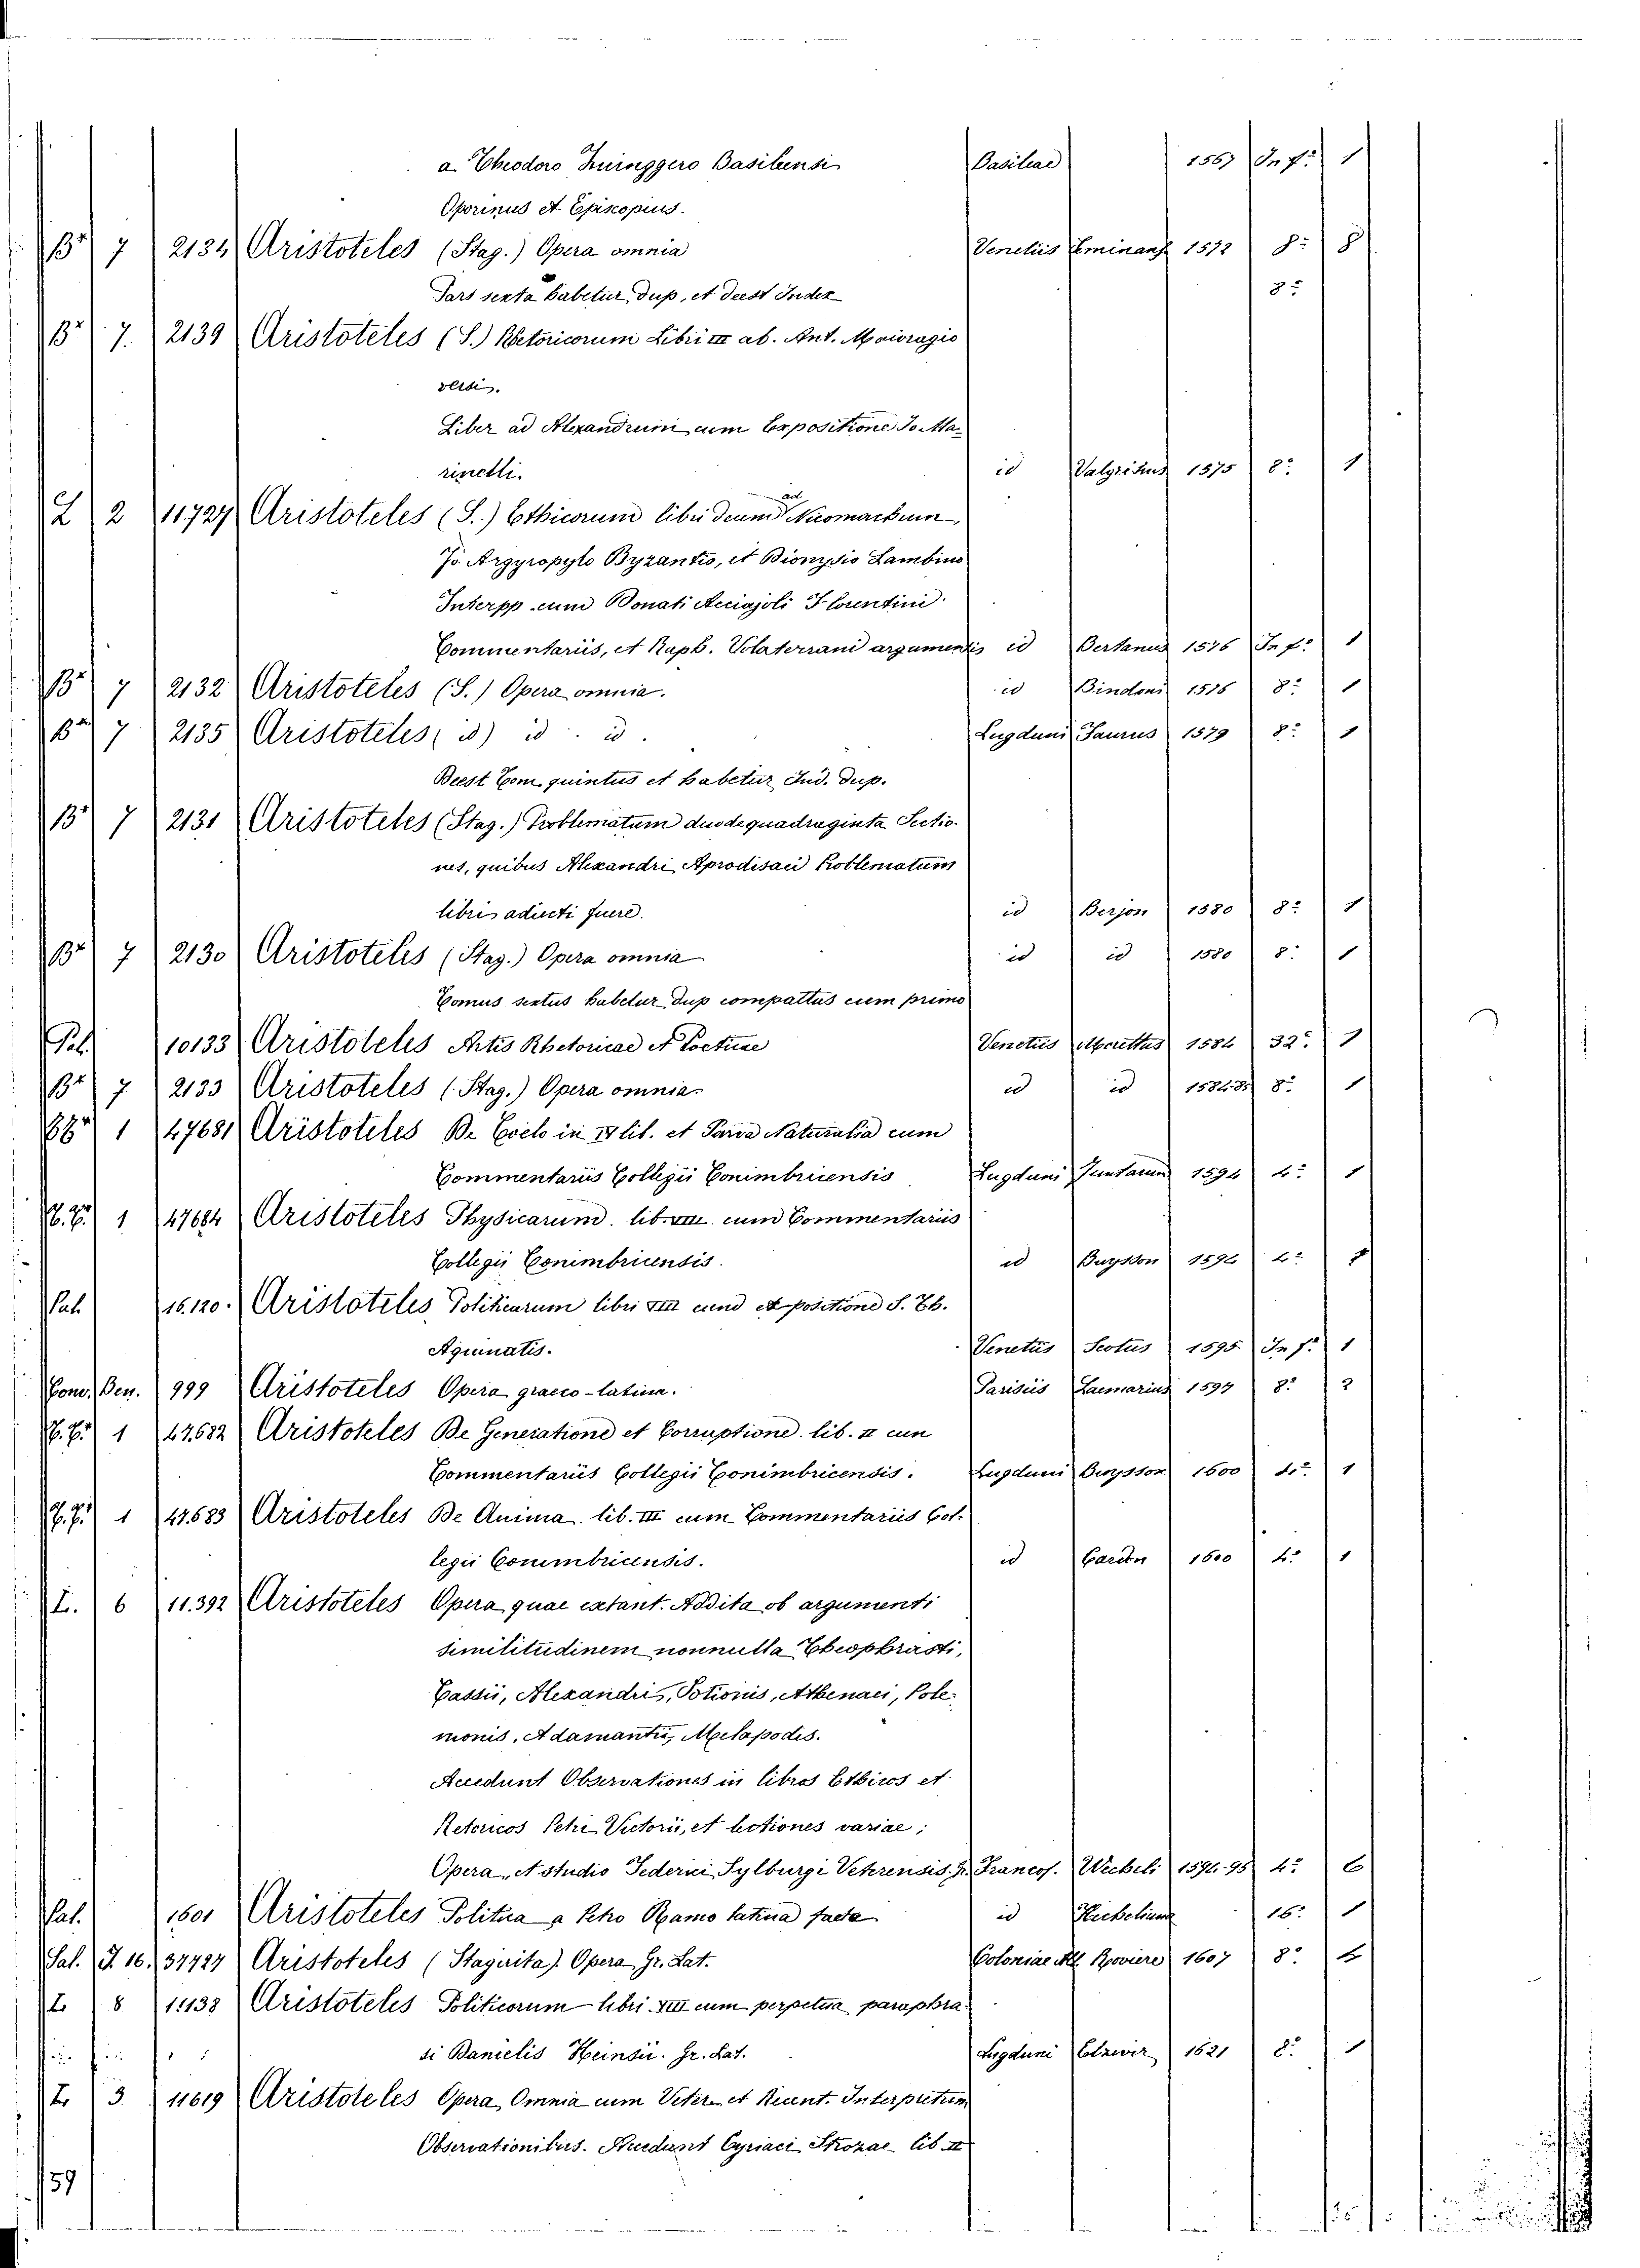 a Theodoro Zuinggero Basileensi Basileae 1567 In f.º 1
Oporinus et Episcopius.
Bª 7 2134 Aristoteles (Stag.) Opera omnia Venetiis 1572 8º 8
Pars sexta habetur dup, et deest Index 8º
Bª 7. 2139 Aristoteles (S.) Retoricorum Libri III ab. Ant. Maioragio
versi.
Liber ad Alexandrum cum Expositione Jo. Ma-
rinelli. id Valgrisius 1575 8º 1
L 2 11727 Aristoteles (S.) Ethicorum libri decem ad Nicomachum
Jo. Argyropylo Byzantio, et Dionysio Lambino
Interpp. cum Donati Acciajoli Florentini
Commentariis, et Raph. Volaterrani argumentis id Bertanus 1576 In f.º 1
Bª 7 2132 Aristoteles (S.) Opera omnia. id Bindoni 1576 8º 1
Bª 7 2135 Aristoteles (id) id . id . Lugduni Taurus 1579 8º 1
Deest Tom. quintus et habetur Ind. dup.
Bª 7 2131 Aristoteles (Stag.) Problematum duodequadraginta Sectio-
nes, quibus Alexandri Aprodisaei Problematum
libri adiecti fuere. id Berjon 1580 8º 1
Bª 7 2130 Aristoteles (Stag.) Opera omnia id id 1580 8º 1
Tomus sextus habetur dup compattus cum primo
Pal. 10133 Aristoteles Artis Rhetoricae et Poeticae Venetiis 1584 32º 1
Bª 7 2133 Aristoteles (Stag.) Opera omnia id id 1584.85 8º 1
1 47681 Aristoteles De Coelo in IV lib. et Parva Naturalia cum
Commentariis Collegii Conimbricensis Lugduni Juntarum 1594 4º 1
1 47684 Aristoteles Physicarum lib. VIII cum Commentariis
Collegii Conimbricensis. id Buysson 1594 4º 1
Pal. 16.120. Aristoteles Politicarum libri VIII cum expositione S. Th.
Aquinatis. Venetiis Scotus 1595 In f.º 1
Com. Ben. 999 Aristoteles Opera graeco-latina. Parisiis Laemarius 1597 8º 2
1 47.682 Aristoteles De Generatione et Corruptione lib. II cum
Commentariis Collegii Conimbricensis. Lugduni Buysson 1600 4º 1
1 47.683 Aristoteles De Anima lib. III cum Commentariis Col-
legii Conimbricensis. id Cardon 1600 4º 1
L. 6 11.392 Aristoteles Opera quae extant. Addita ob argumenti
similitudinem nonnulla Theophrasti,
Cassii, Alexandri, Sotionis, Athenaei, Pole-
monis, Adamantii, Melapodis.
Accedunt Observationes in libros Ethicos et
Retoricos Petri Victorii, et lectiones variae;
Opera, et studio Federici Sylburgi Veterensis. Gr. Francof. Wecheli 1594.95 4º 6
Pal. 1601 Aristoteles Politica a Petro Ramo latina facta id 16º 1
Sal. J. 16. 37727 Aristoteles (Stagirita) Opera Gr. Lat. Coloniae All. Roviere 1607 8º
L 8 11138 Aristoteles Politicorum libri VIII cum perpetua paraphra-
si Danielis Heinsii. Gr. Lat. Lugduni Elzevir 1621 8º 1
L 3 11619 Aristoteles Opera Omnia cum Veter. et Recent. Interpretum
Observationibus. Accedunt Cyriaci Strozae lib. II
59